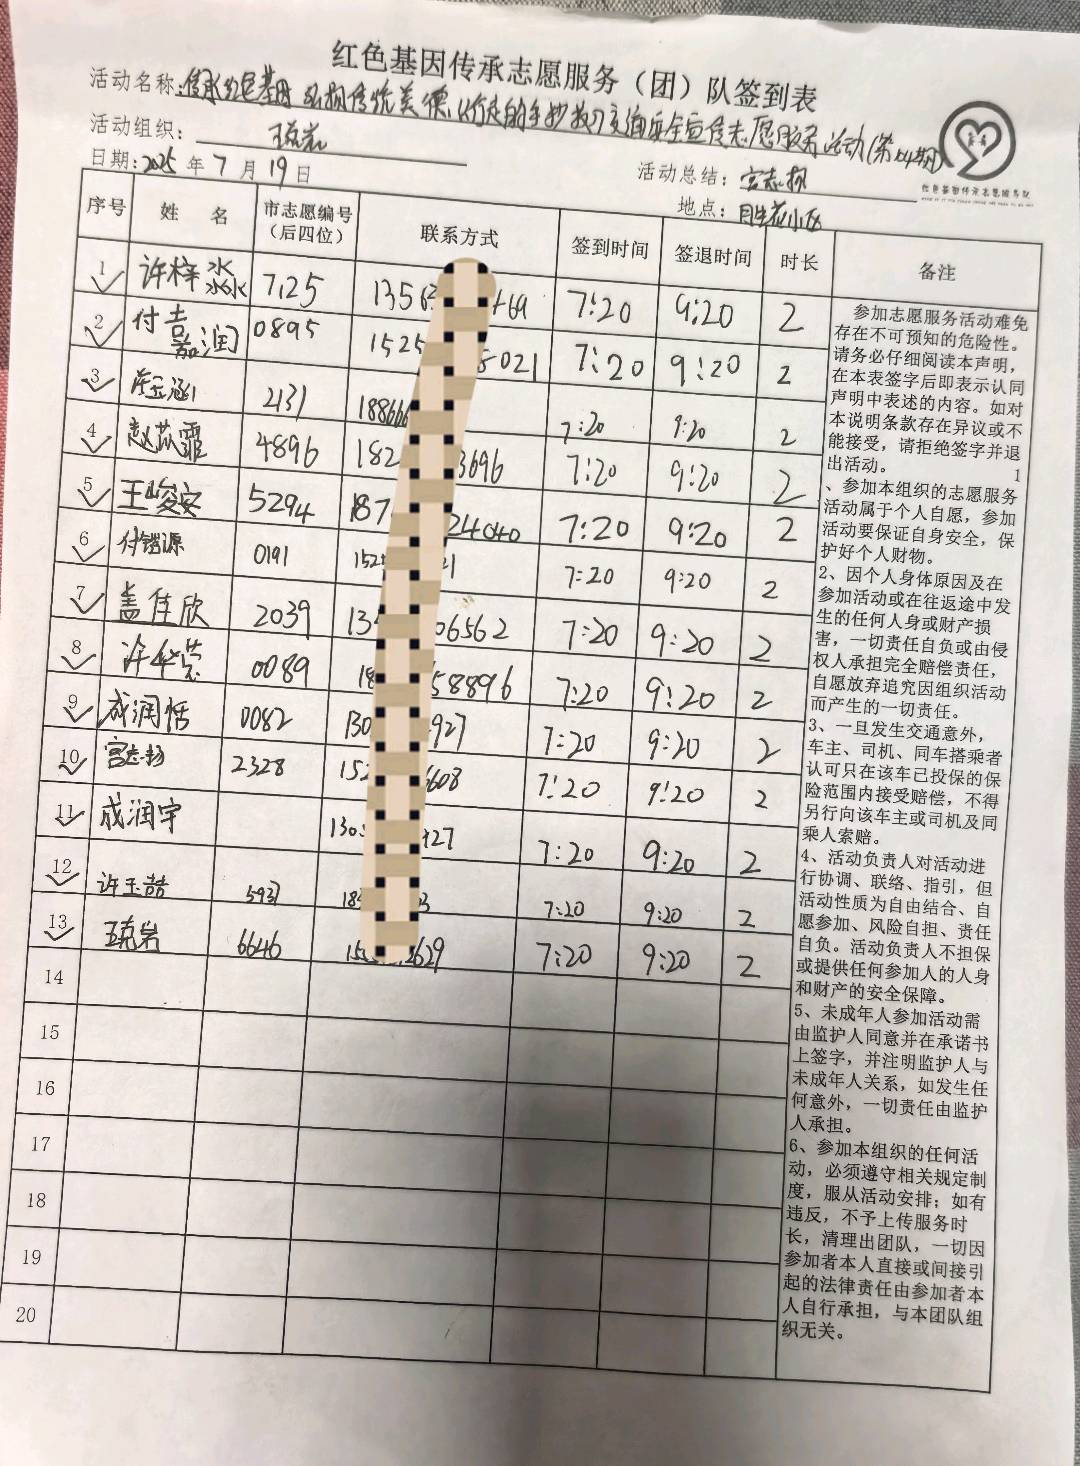 红色基因传承志愿服务（团）队签到表
活动名称：传承红色基因 弘扬传统美德 以行走的 交通安全宣传志愿服务活动(第 期)
活动组织： 王克岩
日期：2025年7月19日
活动总结：宫志扬
地点：月牙花小区
红色基因传承志愿服务队
序号 姓 名 市志愿编号（后四位） 联系方式 签到时间 签退时间 时长 备注
1 许梓淼 7125 1356 469 7:20 9:20 2
2 付嘉润 0895 1525 5021 7:20 9:20 2
3 涵 2131 188666 7:20 9:20 2
4 赵苡霏 4896 182 3696 7:20 9:20 2
5 王峻安 5294 187 24040 7:20 9:20 2
6 付锴源 0191 152 21 7:20 9:20 2
7 盖佳欣 2039 13 06562 7:20 9:20 2
8 许 0089 18 58896 7:20 9:20 2
9 成润恬 0082 130 927 7:20 9:20 2
10 宫志扬 2328 152 6608 7:20 9:20 2
11 成润宇 130 927 7:20 9:20 2
12 许玉喆 5937 18 3 7:20 9:20 2
13 王克岩 6646 15 2629 7:20 9:20 2
14
15
16
17
18
19
20
参加志愿服务活动难免
存在不可预知的危险性。
请务必仔细阅读本声明，
在本表签字后即表示认同
声明中表述的内容。如对
本说明条款存在异议或不
能接受，请拒绝签字并退
出活动。 1
、参加本组织的志愿服务
活动属于个人自愿，参加
活动要保证自身安全，保
护好个人财物。
2、因个人身体原因及在
参加活动或在往返途中发
生的任何人身或财产损
害，一切责任自负或由侵
权人承担完全赔偿责任，
自愿放弃追究因组织活动
而产生的一切责任。
3、一旦发生交通意外，
车主、司机、同车搭乘者
认可只在该车已投保的保
险范围内接受赔偿，不得
另行向该车主或司机及同
乘人索赔。
4、活动负责人对活动进
行协调、联络、指引，但
活动性质为自由结合、自
愿参加、风险自担、责任
自负。活动负责人不担保
或提供任何参加人的人身
和财产的安全保障。
5、未成年人参加活动需
由监护人同意并在承诺书
上签字，并注明监护人与
未成年人关系，如发生任
何意外，一切责任由监护
人承担。
6、参加本组织的任何活
动，必须遵守相关规定制
度，服从活动安排；如有
违反，不予上传服务时
长，清理出团队，一切因
参加者本人直接或间接引
起的法律责任由参加者本
人自行承担，与本团队组
织无关。